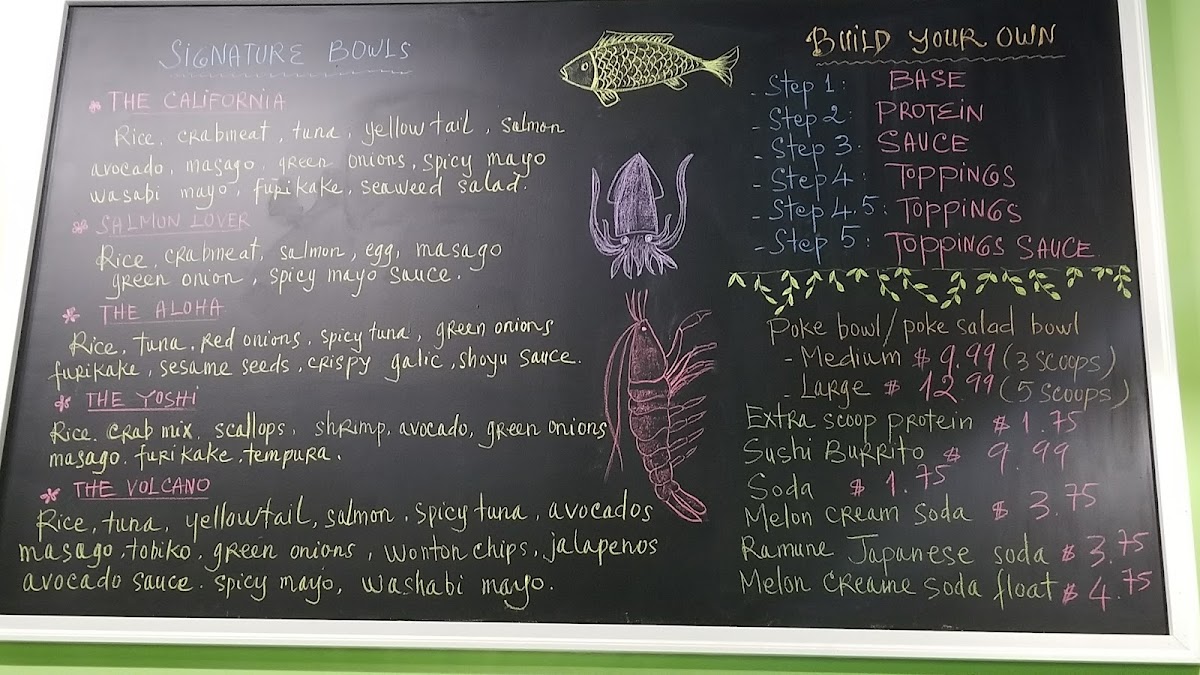 SIGNATURE BOWLS
* THE CALIFORNIA
Rice, crabmeat, tuna, yellow tail, salmon
avocado, masago, green onions, spicy mayo
wasabi mayo, furikake, seaweed salad.
* SALMON LOVER
Rice, crabmeat, salmon, egg, masago
green onion, spicy mayo sauce.
* THE ALOHA
Rice, tuna, red onions, spicy tuna, green onions
furikake, sesame seeds, crispy galic, shoyu sauce.
* THE YOSHI
Rice, crab mix, scallops, shrimp, avocado, green onions
masago, furikake, tempura.
* THE VOLCANO
Rice, tuna, yellowtail, salmon, spicy tuna, avocados
masago, tobiko, green onions, wonton chips, jalapenos
avocado sauce. spicy mayo, washabi mayo.
BUILD YOUR OWN
- Step 1: BASE
- Step 2: PROTEIN
- Step 3: SAUCE
- Step 4: TOPPINGS
- Step 4.5: TOPPINGS
- Step 5: TOPPINGS SAUCE
Poke bowl/poke salad bowl
- Medium $ 9.99 (3 scoops)
- Large $ 12.99 (5 scoops)
Extra scoop protein $ 1.75
Sushi Burrito $ 9.99
Soda $ 1.75
Melon cream soda $ 3.75
Ramune Japanese soda $ 3.75
Melon creame soda float $ 4.75